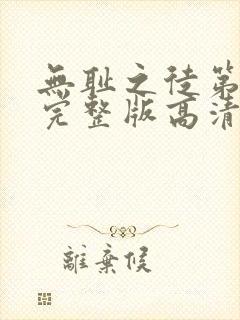 無耻之徒第
完整版高清
離棄候